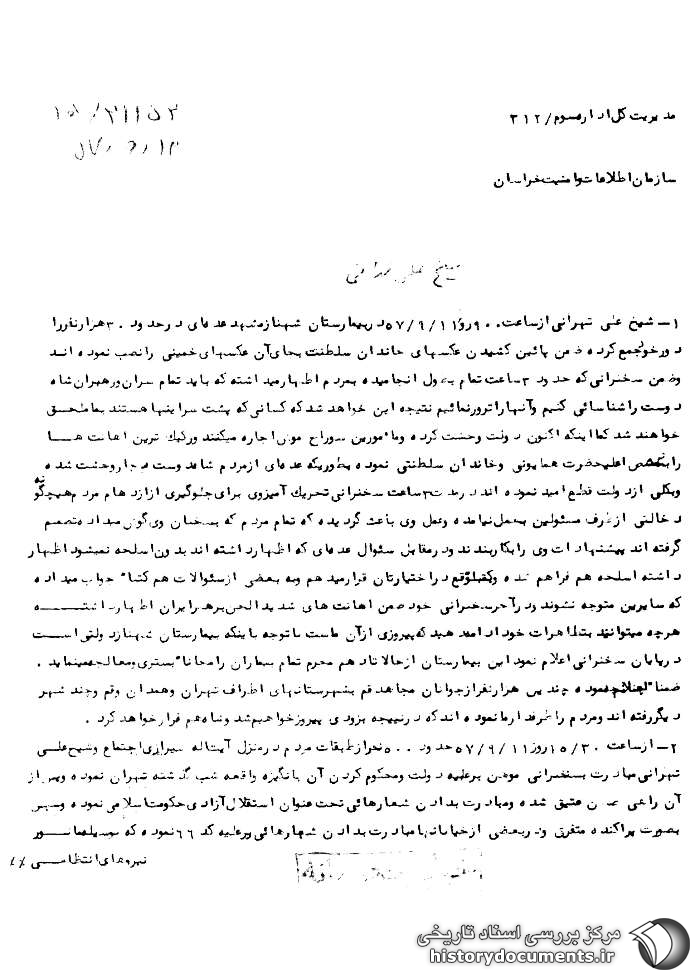 مدیریت کل اداره سوم / ۳۱۲
سازمان اطلاعات و امنیت خراسان
شیخ علی تهرانی
۱- شیخ علی تهرانی از ساعت ۰۹۰۰ روز ۵۷/۹/۱۱ در بیمارستان شهناز مشهد عده‌ای در حدود ۳۰ هزار نفر را
دور خود جمع کرده ضمن پائین کشیدن عکسهای خاندان سلطنت بجای آن عکسهای خمینی را نصب نموده اند
وضمن سخنرانی که حدود ۳ ساعت تمام بطول انجامیده بمردم اظهار میداشته که باید تمام سران ورهبران شاه
دوست را شناسائی کنیم وآنها را ترور نمائیم نتیجه این خواهد شد که کسانی که پشت سر اینها هستند بما ملحق
خواهند شد کما اینکه اکنون دولت وحشت کرده وما مورین سوراخ موش اجاره میکنند ورکیک ترین اهانت هـا
را بشخص اعلیحضرت همایونی وخاندان سلطنتی نموده بطوریکه عده‌ای از مردم شاهدوست دچار وحشت شده
وبکلی از دولت قطع امید نموده اند در مدت ۳ ساعت سخنرانی تحریک آمیز وی برای جلوگیری از ازدهام مردم هیچگونه
دخالتی از طرف مسئولین بعمل نیامده وعمل وی باعث گردیده که تمام مردم که بسخنان وی گوش میداده تصمیم
گرفته اند پیشنهادات وی را بکار بندند ودر مقابل سئوال عده‌ای که اظهار داشته اند بدون اسلحه نمیشود اظهار
داشته اسلحه هم فراهم شده وبموقع در اختیارتان قرار میدهم وبه بعضی از سئوالات هم کتبا" جواب میداده
که سایرین متوجه نشوند ودر آخر سخنرانی خود ضمن اهانت های شدید الحن برهبر ایران اظهار داشتـــه
هرچه میتوانند بتظاهرات خود ادامه دهید که پیروزی از آن ماست با توجه باینکه بیمارستان شهناز دولتی اسـت
در پایان سخنرانی اعلام نمود این بیمارستان از حالا تا دهم محرم تمام بیماران را مجانا" بستری ومعالجه مینماید .
ضمنا" نموده چندین هزار نفر از جوانان مجاهد قم بشهرستانهای اطراف تهران وهمدان وقم وچند شهر
دیگر رفته اند ومردم را طرفدار ما نموده اند که در نتیجه بزودی پیروز خواهیم شد وشاه هم فرار خواهد کرد .
۲- از ساعت ۱۵/۳۰ روز ۵۷/۹/۱۱ حدود ۵۰۰ نفر از طبقات مردم در منزل آیت اله شیرازی اجتماع وشیخ علـی
تهرانی مبادرت بسخنرانی موهن بر علیه دولت ومحکوم کردن آن بانگیزه واقعه شب گذشته تهران نموده وپس از
آن راهی صحن عتیق شده ومبادرت بدادن شعارهائی تحت عنوان استقلال آزادی حکومت اسلامی نموده وسپس
بصورت پراکنده متفرق ودر بعضی از خیابانها مبادرت بدادن شعارهائی بر علیه کد ۶۶ نموده که بوسیله مامـور
نیروهای انتظامــی
مرکز بررسی اسناد تاریخی
historydocuments.ir